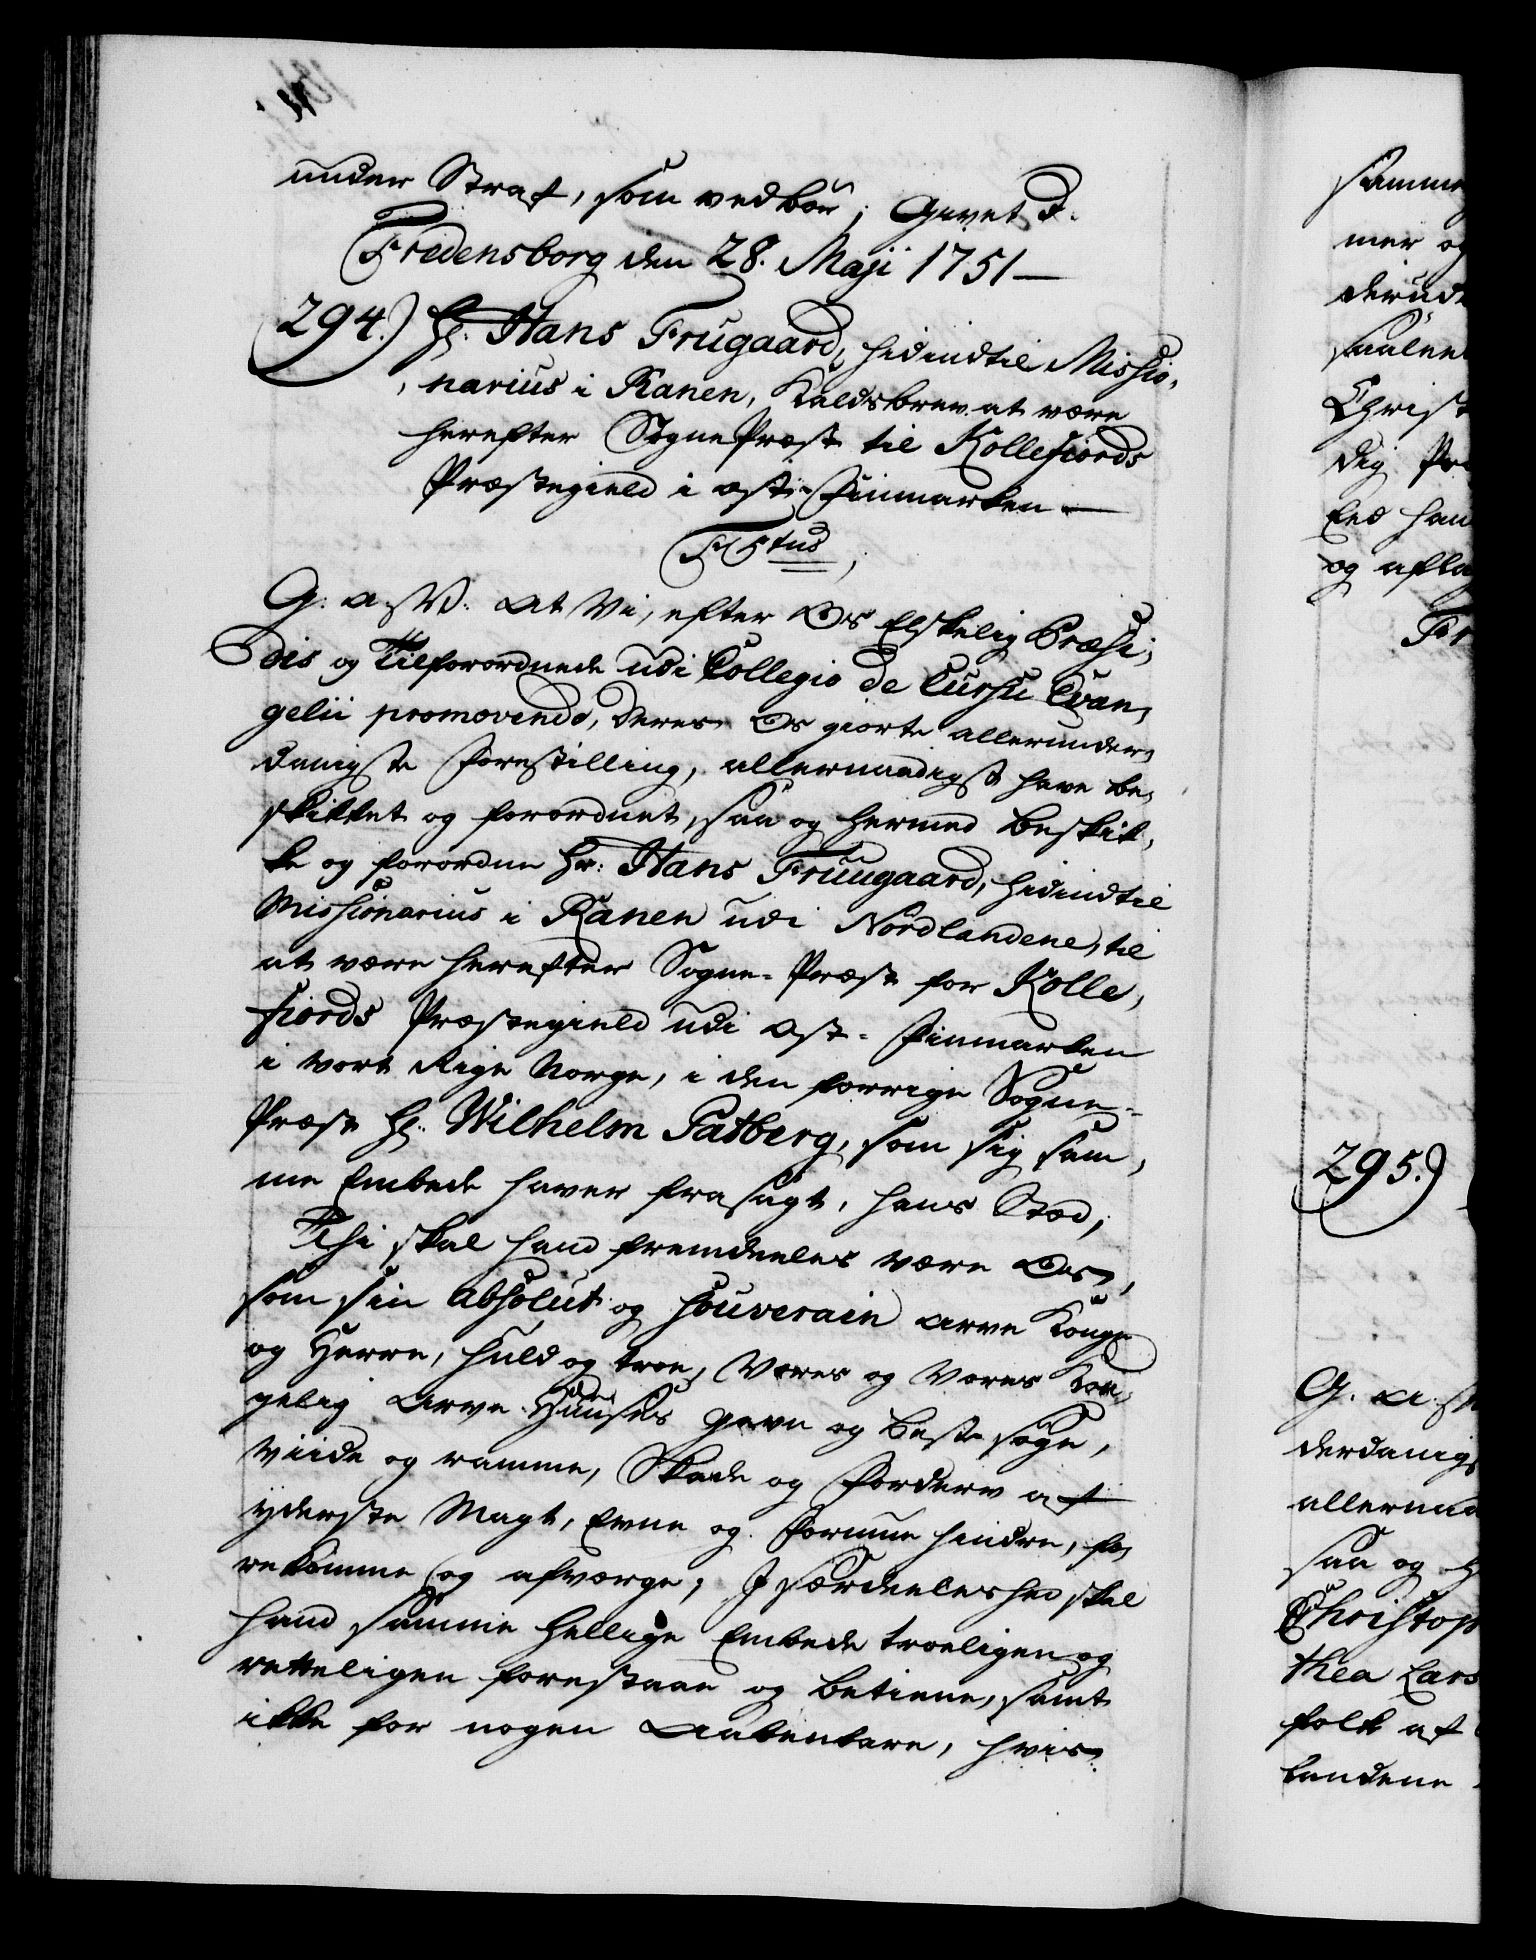 under Straf, som vedbør; Givet d.
Fredensborg den 28. Maji 1751 —
294.) Hr. Hans Frugaard, hidindtil Missio-
narius i Ranen, Kaldsbrev at være
herefter SognePræst til Kollefiords
Præstegield i Ost-Finmarken. —
F5tus
G. a. s. V. at Vi, efter Os Elskelig Præsi-
dis og Tilforordnede udi Collegio de Cursu Evan-
gelii promovendo, deres Os giorte allerunder-
danigste Forestilling, allernaadigst have be-
skikket og forordnet, saa og hermed beskik-
ke og forordne Hr: Hans Fruugaard, hidindtil
Missionarius i Ranen udi Nordlandene, til
at være herefter Sogne-Præst for Kolle-
fiords Præstegield udi Ost-Finmarken
i Vort Rige Norge, i den forrige Sogne-
Præst Hr. Wilhelm Patberg, som sig sam-
me Embede haver frasagt, hans Sted;
Thi skal hand fremdeeles være Os,
som sin absolut og souverain Arve Konge
og Herre, huld og troe, Vores og Vores Kon-
gelig Arve Huuses gavn og beste søge,
Viide og ramme, Skade og Forderv af
yderste Magt, Evne og Formue hindre, fo-
rekomme og afverge; J særdeeleshed skal
hand samme hellige Embede troeligen og
retteligen forestaae og betiene, samt
ikke for nogen Aabenbare, hvis
samme
mer og
Christ
dig Pr
og afla
Fr
295.)
G. a. s.
derdanigs
allernaa
saa og h
Christop
thea Lars
folk af
landene